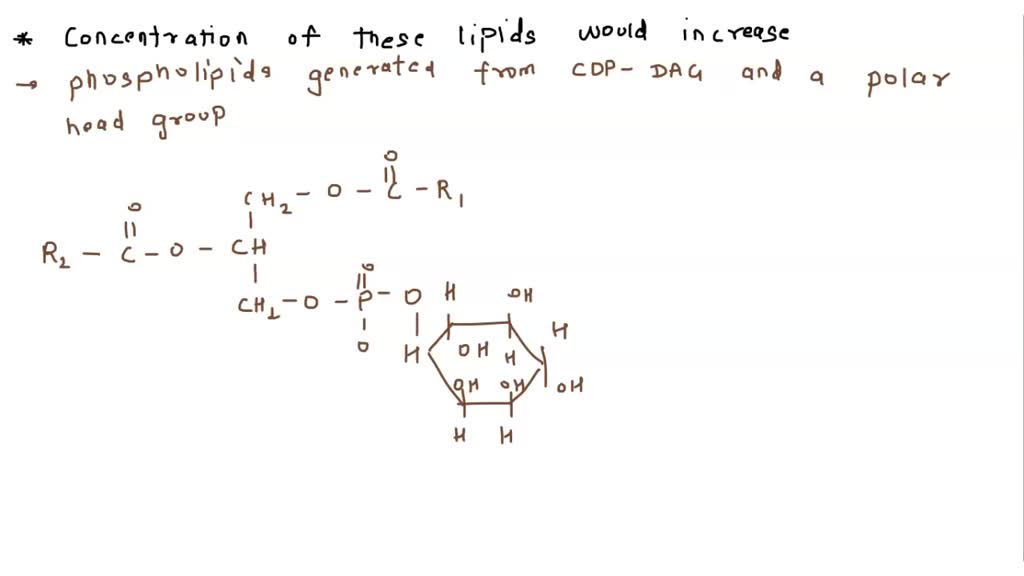 * Concentration of these lipids would increase
→ phospholipids generated from CDP-DAG and a polar
head group
O
CH2 - O - C - R1
O
R2 - C - O - CH
O
CH2 - O - P - O H OH
H
O H OH H
OH OH OH
H H